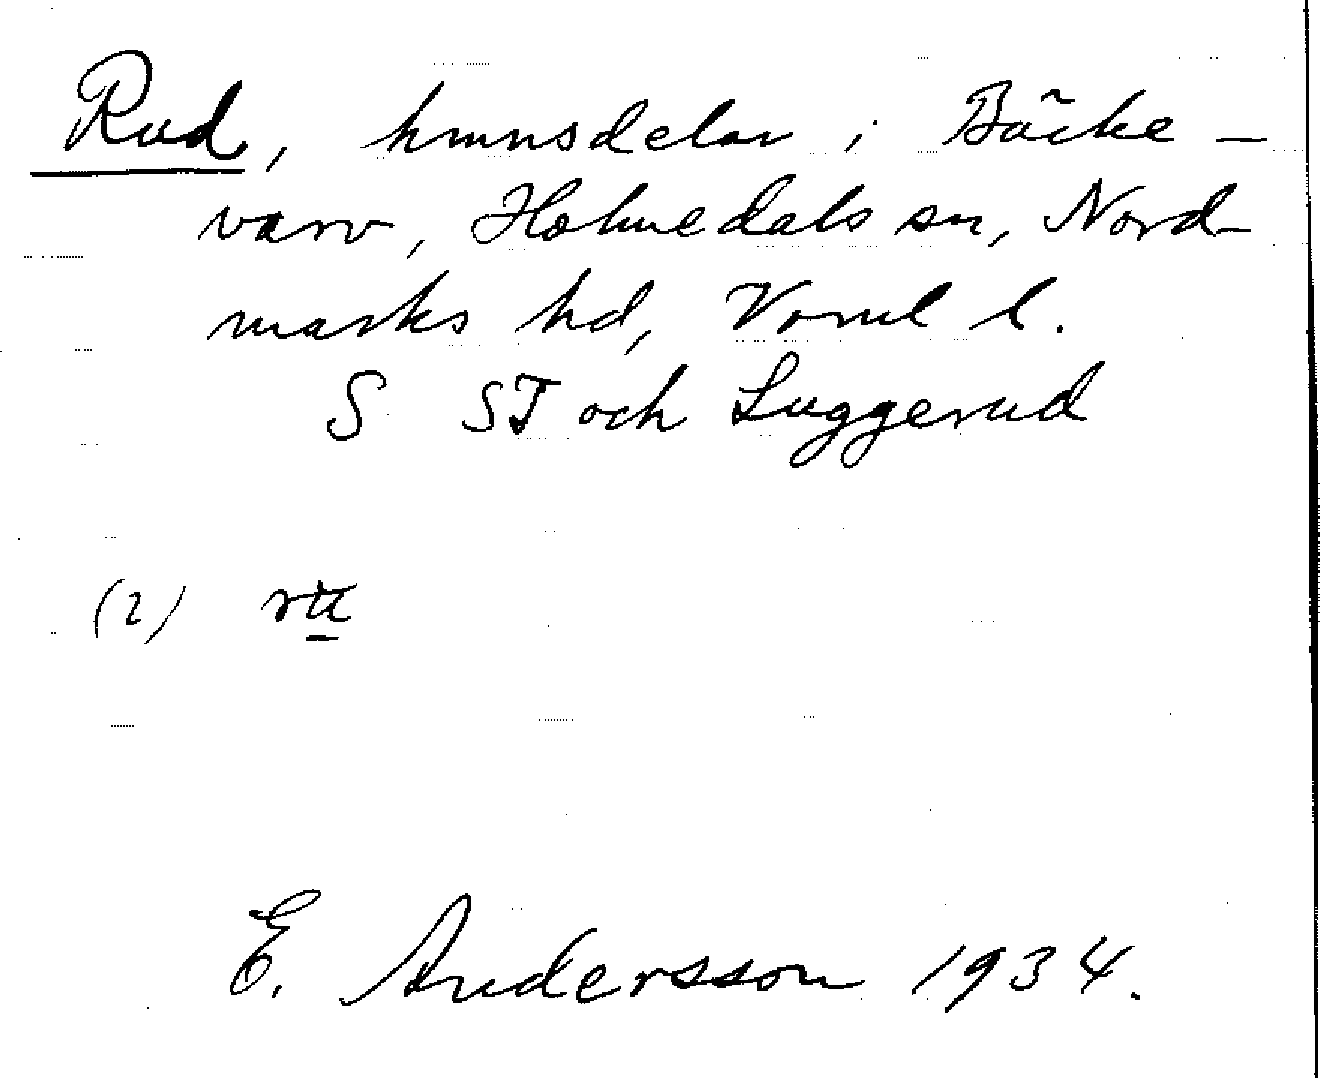 Rud, hmnsdelar i Bäcke-
varv, Holmedals sn, Nord-
marks hd, Vrml l.
S ST och Luggerud
(2)
E. Andersson 1934.